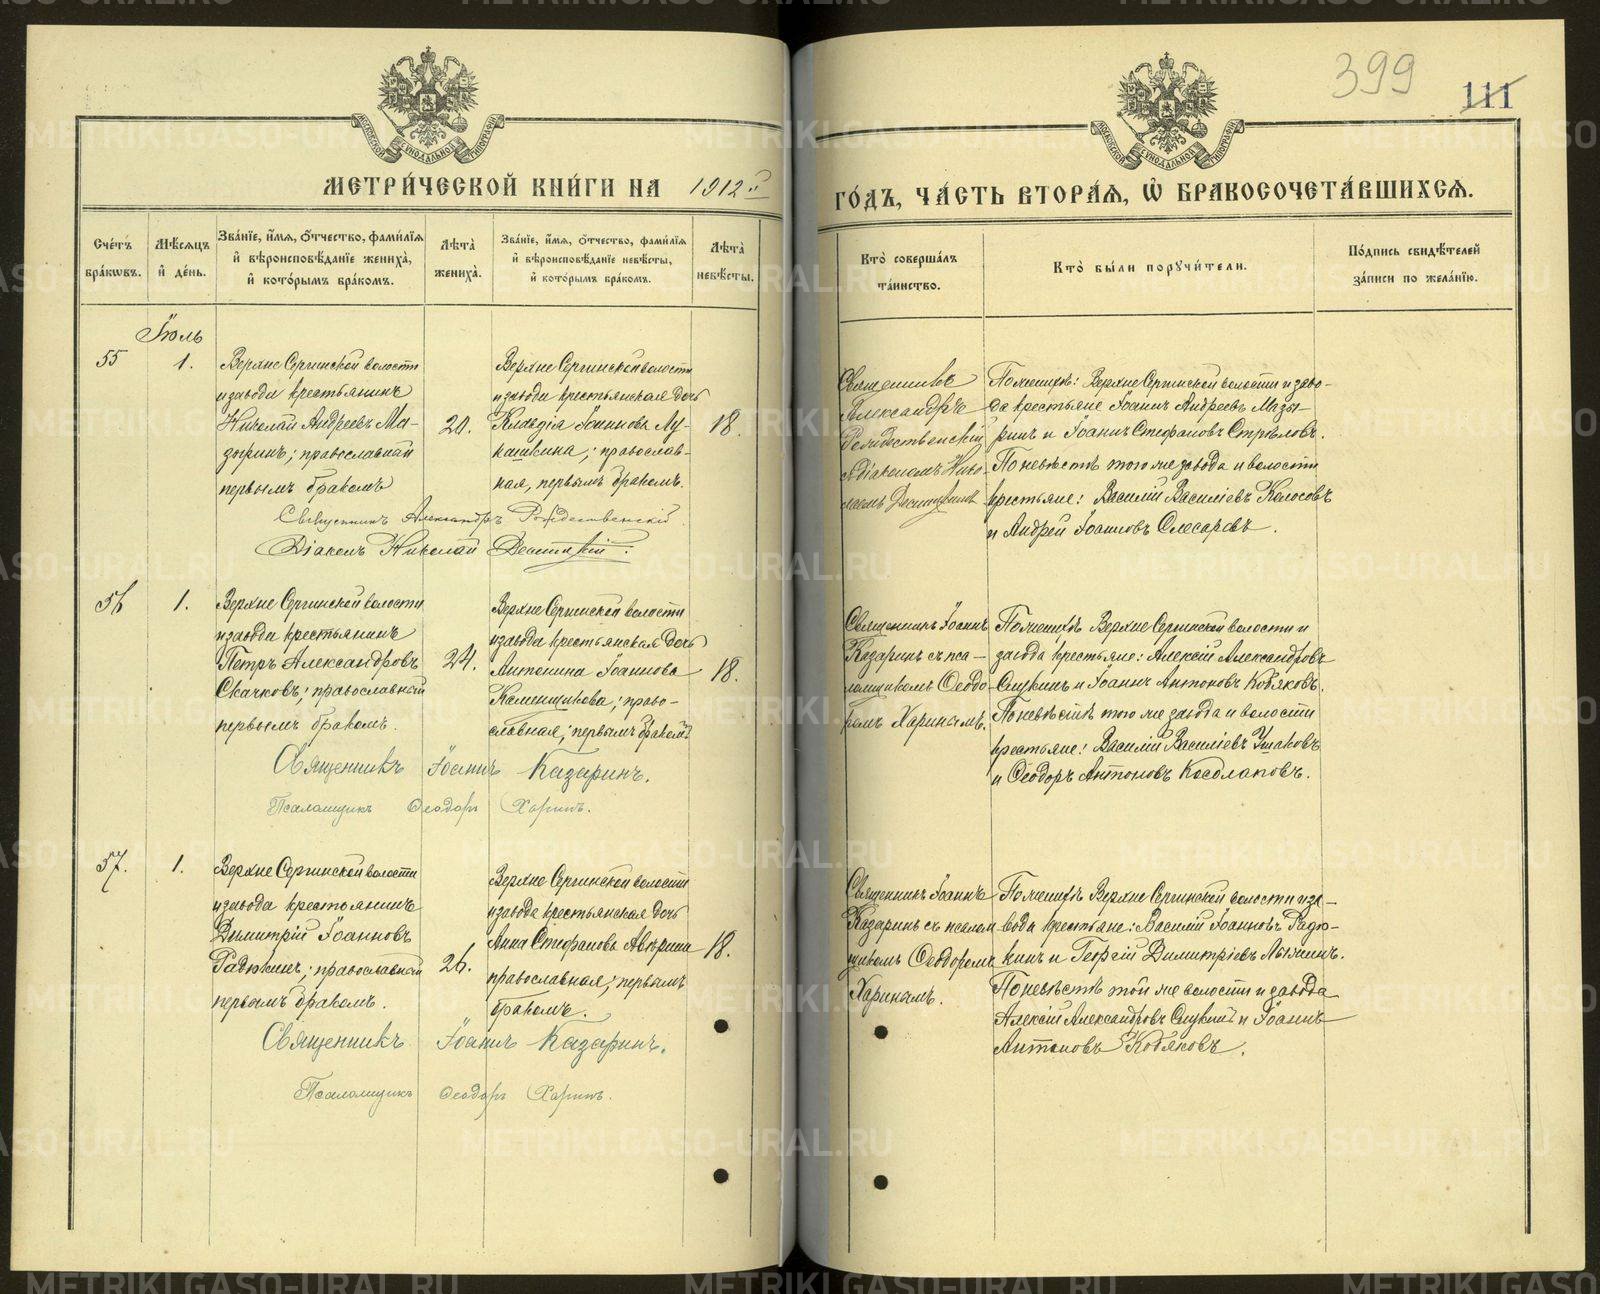 399
111
МОСКОВСКОЙ СѴНОДАЛЬНОЙ ТИПОГРАФІИ
МОСКОВСКОЙ СѴНОДАЛЬНОЙ ТИПОГРАФІИ
МЕТРИ́ЧЕСКОЙ КНИ́ГИ НА 1912 й
ГО́ДЪ, ЧА́СТЬ ВТОРА́Я, Ѡ҆ БРАКОСОЧЕТА́ВШИХСЯ.
Сче́тъ бра́кѡвъ.
Мѣ́сяцъ и҆ де́нь.
Зва́нїе, и҆́мя, ѻ҆́тчество, фами́лїя
и҆ вѣроисповѣ́данїе жениха̀,
и҆ кото́рымъ бра́комъ.
Лѣта̀ жениха̀.
Зва́нїе, и҆́мя, ѻ҆́тчество, фами́лїя
и҆ вѣроисповѣ́данїе невѣ́сты,
и҆ кото́рымъ бра́комъ.
Лѣта̀ невѣ́сты.
Кто̀ соверша́лъ
та́инство.
Кто̀ бы́ли порꙋчи́тели.
По́дпись свидѣ́телей
за́писи по жела́нїю.
Іюль
55
1.
Верхне Сергинской волости
и завода крестьянинъ
Николай Андреевъ Ма-
зыринъ; православный
первымъ бракомъ
20.
Верхне Сергинской волости
и завода крестьянская дочь
Клавдія Іоаннова Лу-
кашкина; православ-
ная, первымъ бракомъ.
18.
Священникъ
Александръ
Рождественскій
съ діакономъ Нико-
лаемъ
По женихѣ: Верхне Сергинской волости и заво-
да крестьяне Іоаннъ Андреевъ Мазы-
ринъ и Іоаннъ Стефановъ Стрѣловъ.
По невѣстѣ того же завода и волости
крестьяне: Василій Василіевъ Колосовъ
и Андрей Іоанновъ Слесаревъ.
Священникъ Александръ Рождественскій
Діаконъ Николай
56
1.
Верхне Сергинской волости
и завода крестьянинъ
Петръ Александровъ
Скачковъ; православный
первымъ бракомъ.
24.
Верхне Сергинской волости
и завода крестьянская дочь
Антонина Іоаннова
Каменщикова; право-
славная; первымъ бракомъ
18.
Священникъ Іоаннъ
Казаринъ съ пса-
ломщикомъ Ѳеодо-
ромъ Харинымъ.
По женихѣ Верхне Сергинской волости и
завода крестьяне: Алексій Александровъ
и Іоаннъ Антоновъ Кобяковъ.
По невѣстѣ того же завода и волости
крестьяне: Василій Василіевъ Ушаковъ
и Ѳеодоръ Антоновъ Косолаповъ.
Священникъ Іоаннъ Казаринъ.
Псаломщикъ Ѳеодоръ Харинъ.
57.
1.
Верхне Сергинской волости
и завода крестьянинъ
Димитрій Іоанновъ
Радюкинъ; православный
первымъ бракомъ.
26.
Верхне Сергинской волости
и завода крестьянская дочь
Анна Стефанова Аверина
православная; первымъ
бракомъ.
18.
Священникъ Іоаннъ
Казаринъ съ псалом
щикомъ Ѳеодоромъ
Харинымъ.
По женихѣ Верхне Сергинской волости и за-
вода крестьяне: Василій Іоанновъ Радю-
кинъ и Георгій Димитріевъ
По невѣстѣ той же волости и завода
Алексій Александровъ и Іоаннъ
Антоновъ Кобяковъ.
Священникъ Іоаннъ Казаринъ.
Псаломщикъ Ѳеодоръ Харинъ.
METRIKI.GASO-URAL.RU